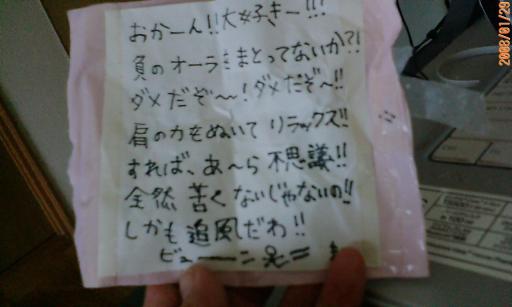 おかーん!!大好きー!!!
負のオーラをまとってないか?!
ダメだぞ〜〜!ダメだぞ〜!!
肩の力をぬいてリラックス!!
すれば、あ〜ら不思議!!
全然苦くないじゃないの!!
しかも追風だわ!!
ビューーーン
2008/01/29